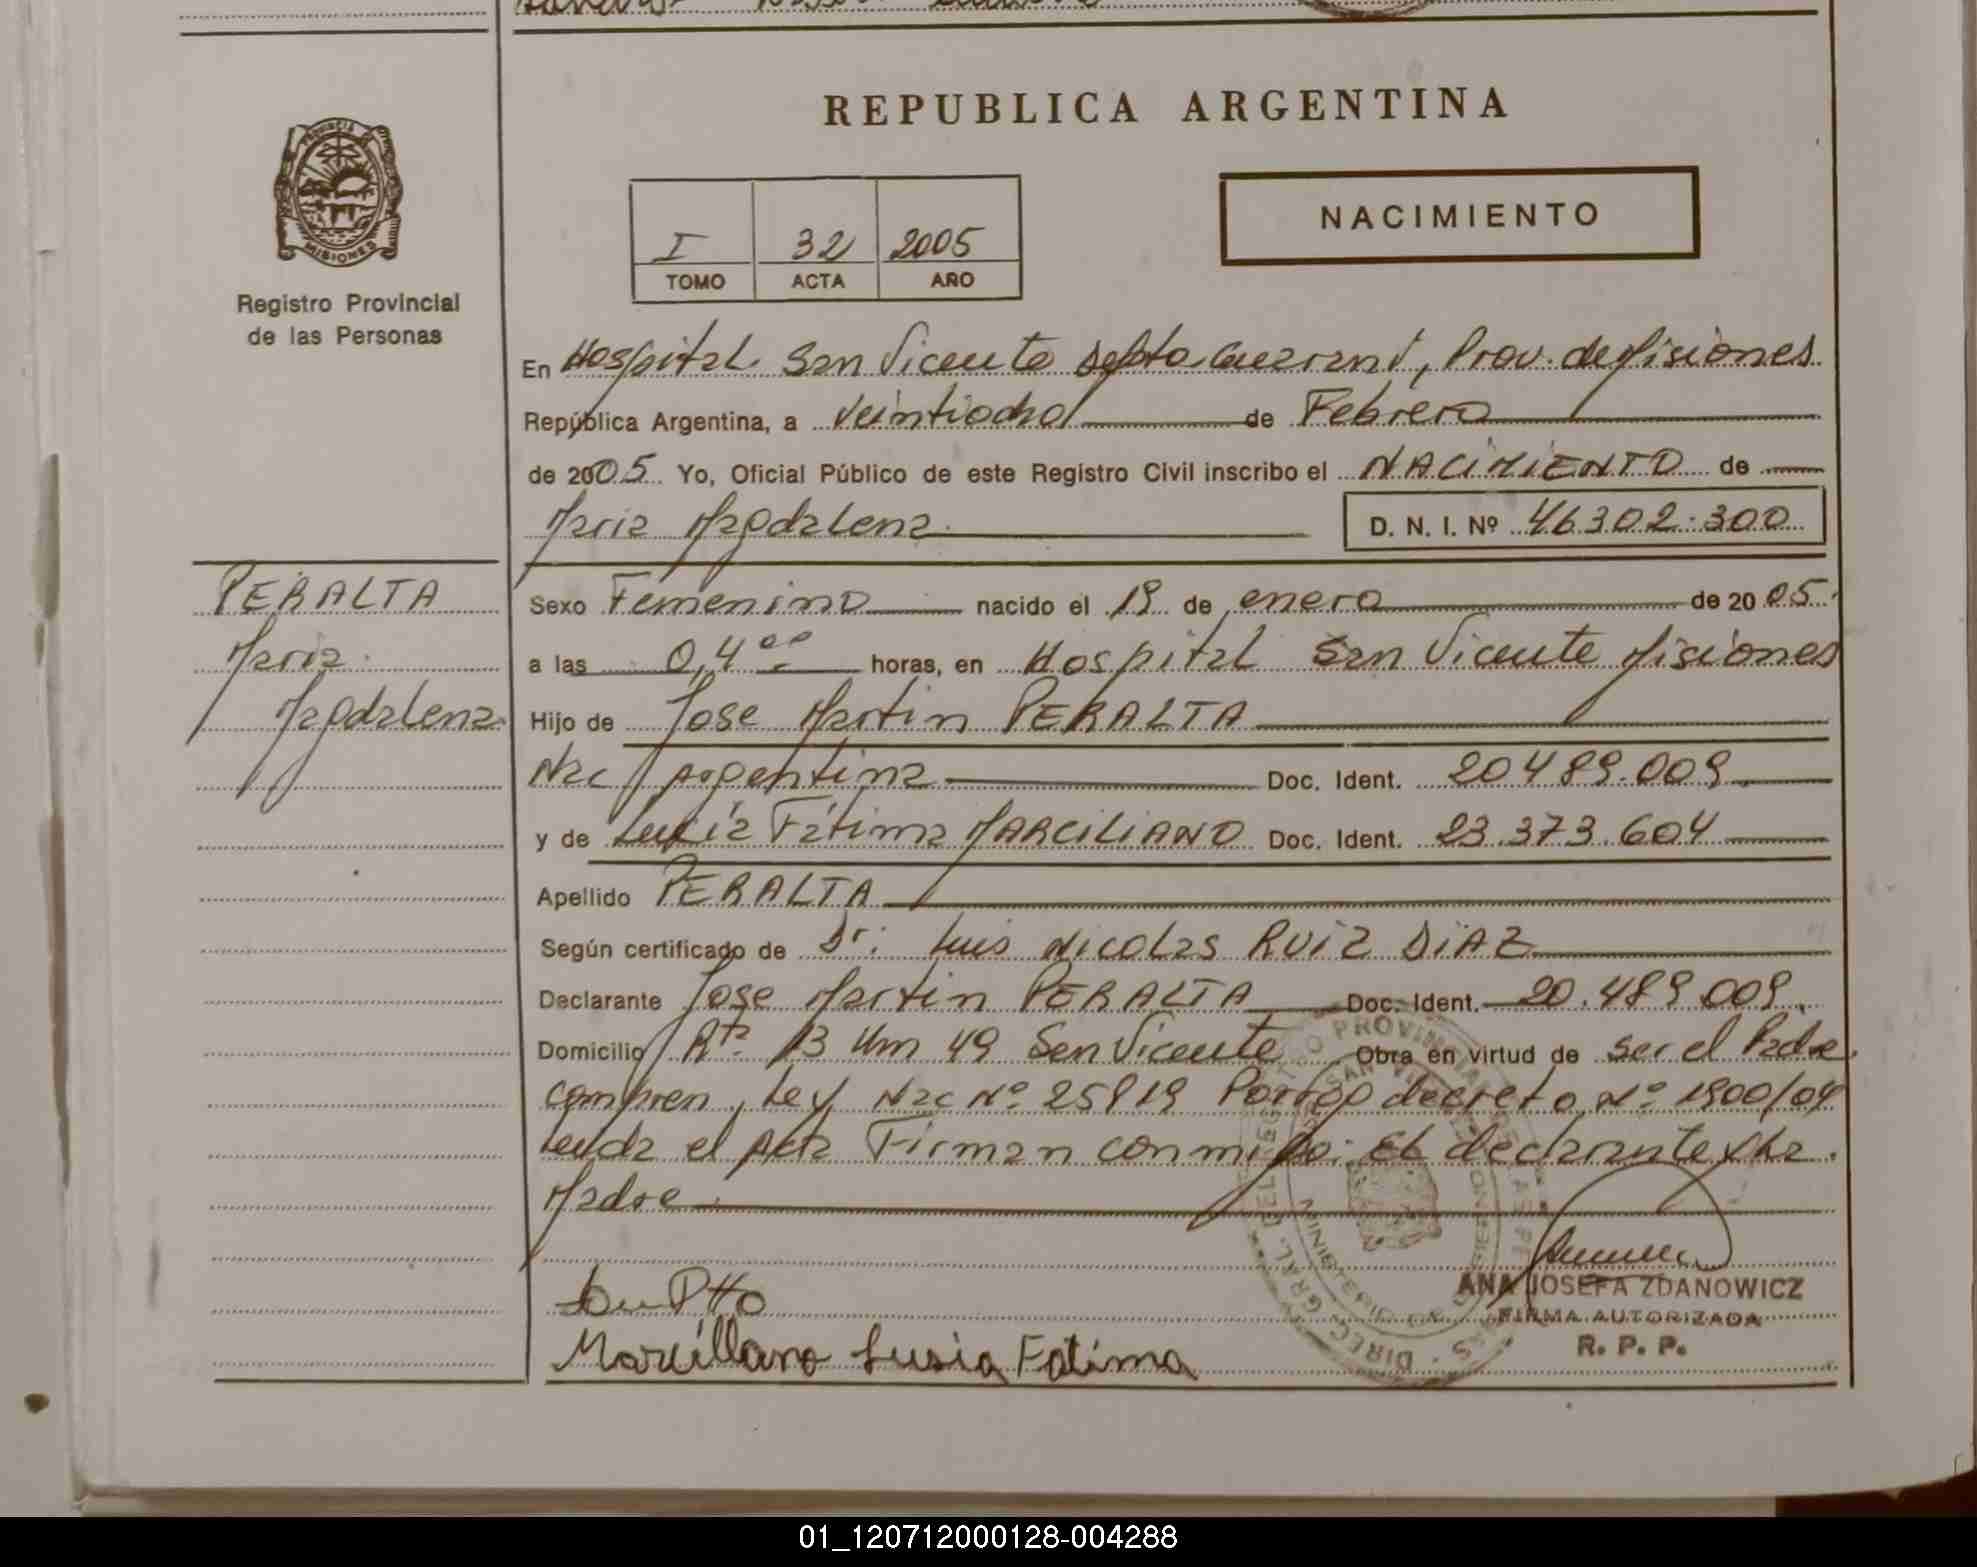 REPUBLICA ARGENTINA
PROVINCIA
MISIONES
Registro Provincial
de las Personas
I 32 2005
TOMO ACTA AÑO
NACIMIENTO
En Hospital San Vicente Depto Guarani, Prov. de Misiones
República Argentina, a veintiocho de Febrero
de 2005 Yo, Oficial Público de este Registro Civil inscribo el NACIMIENTO de
Maria Magdalena D. N. I. Nº 46302.300
PERALTA
Maria
Magdalena
Sexo Femenino nacido el 19 de enero de 2005
a las 04 00 horas, en Hospital San Vicente Misiones
Hijo de Jose Martin PERALTA
Nac Argentina Doc. Ident. 20489.009
y de Lucia Fátima MARCILIANO Doc. Ident. 23.373.604
Apellido PERALTA
Según certificado de Dr: Luis Nicolas RUIZ DIAZ
Declarante Jose Martin PERALTA Doc. Ident. 20.489.009
Domicilio Rta 13 Km 49 San Vicente Obra en virtud de ser el Padre
Ley Nac Nº 25819 decreto Nº 1900/04
Leida el Acta Firman conmigo: El declarante y la
Madre
Marcillano Lusia Fatima
ANA JOSEFA ZDANOWICZ
FIRMA AUTORIZADA
R. P. P.
01_120712000128-004288